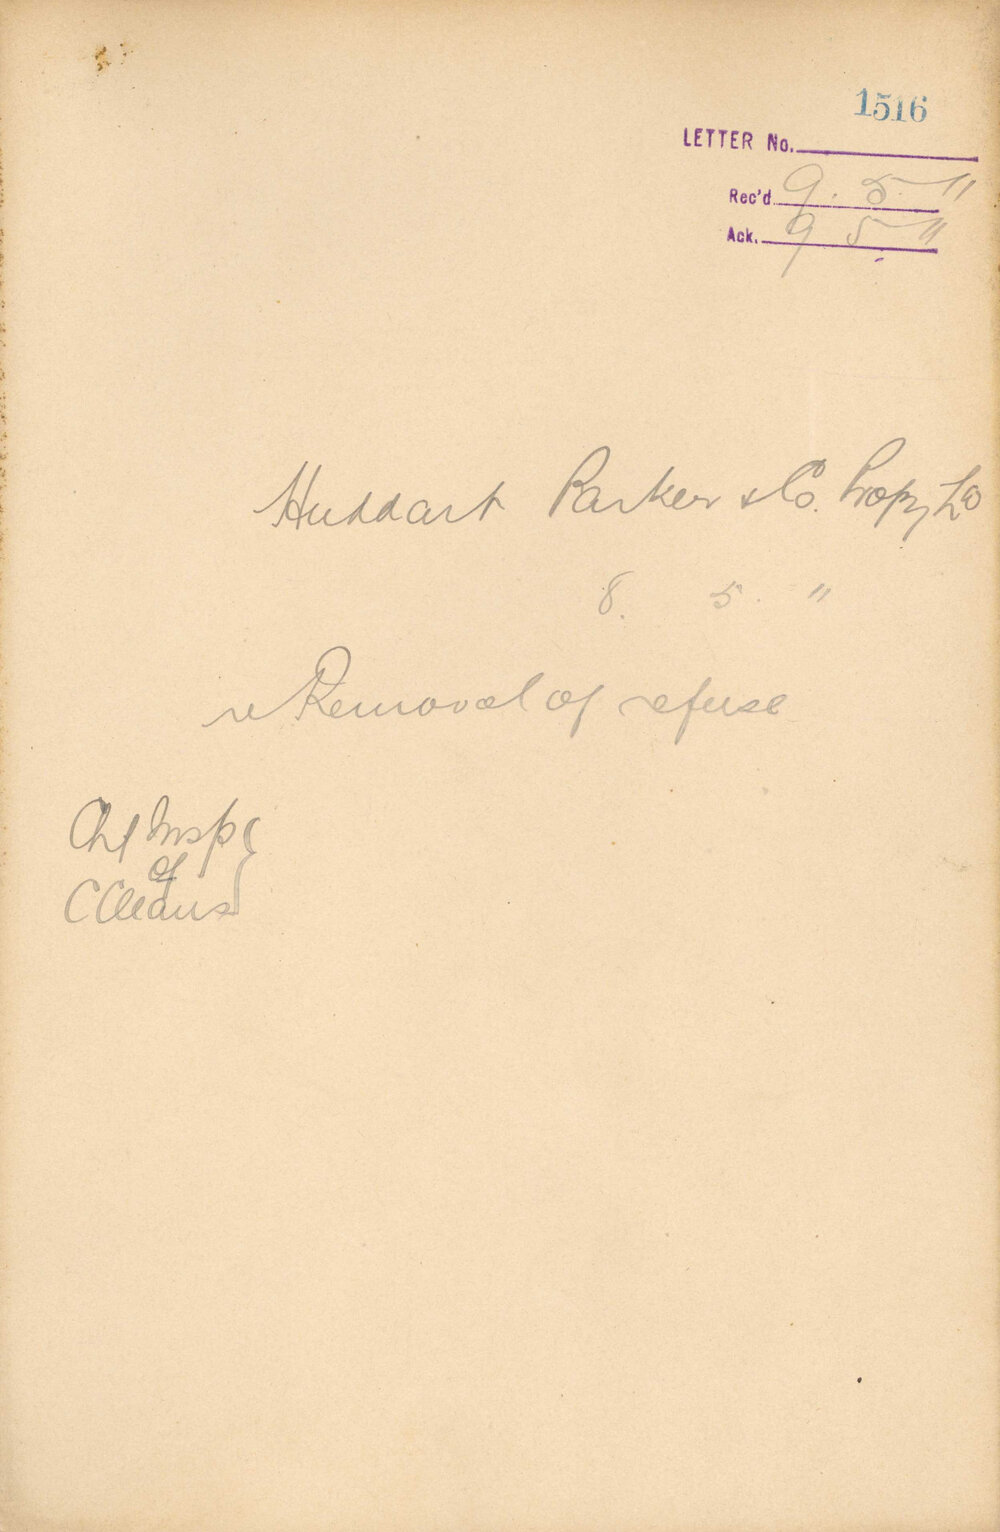 1516
LETTER No.
Rec'd 9. 5. 11
Ack. 9 5 11
Huddart Parker & Co. Propy Ld
8. 5. 11
re Removal of refuse
Chf Insp
of
C Cleans